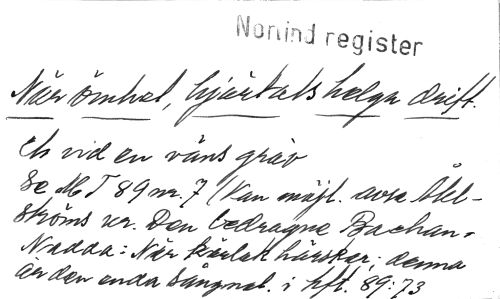 Norlind register
När ömhet, hjärtats helga drift.
Ch vid en väns grav
Se MT 89 nr. 7 (Kan möjl. avse Åhl-
ströms nr. Den bedragne Bachan-
Nadda: När kärlek härskar; denna
är den enda sångnot. i hft. 89:73